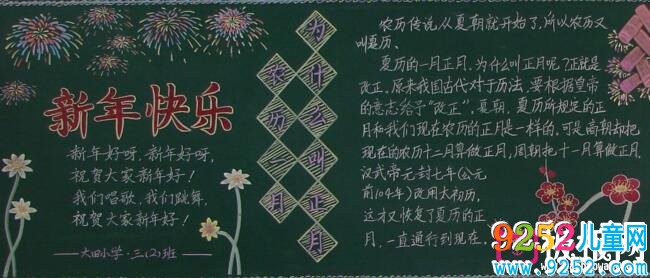 新年快乐
新年好呀,新年好呀,
祝贺大家新年好!
我们唱歌,我们跳舞,
祝贺大家新年好!
——大田小学·三(2)班
为什么叫正月
农历一月
农历传说从夏朝就开始了,所以农历又
叫夏历。
夏历的一月正月,为什么叫正月呢?正就是
改正。原来我国古代对于历法,要根据皇帝
的意志给予“改正”,夏朝,夏历所规定的正
月和我们现在农历的正月是一样的,可是商朝却把
现在的农历十二月算做正月,周朝把十一月算做正月,
汉武帝元封七年(公元
前104年)改用太初历,
这才又恢复了夏历的正
月,一直通行到现在。
9252儿童网
www.9252.com